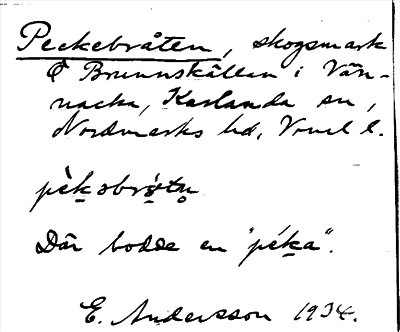 Peckebråten, skogsmark
Ö Brunnskällan i Vän-
nacka, Karlanda sn,
Nordmarks hd, Vrml l.
pèkəbrǫ́tn̥
Där bodde en "péka".
E. Andersson 1934.